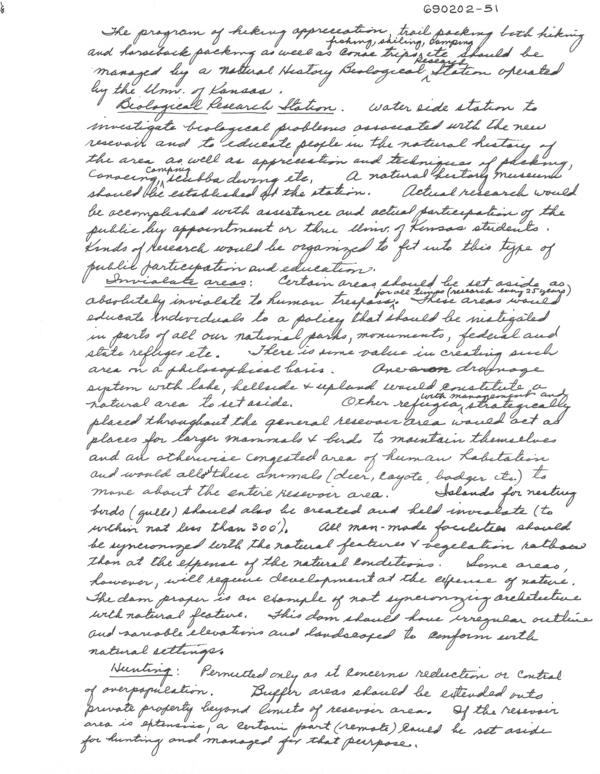 690202-51
The program of hiking appreciation, trail packing both hiking
fishing, skiing, camping
and horseback packing as well as canoe trips, etc should be
Research
managed by a Natural History Biological Station operated
by the Univ. of Kansas.
Biological Research Station. Water side station to
investigate biological problems associated with the new
resevoir and to educate people in the natural history of
the area as well as appreciation and techniques of packing,
camping
canoeing, scubba diving etc. A natural history museum
should be established at the station. Actual research would
be accomplished with assistance and actual participation of the
public by appointment or thru Univ. of Kansas students.
Kinds of research would be organized to fit into this type of
public participation and education.
Inviolate areas: Certain areas should be set aside as
for all times (research every 25 years)
absolutely inviolate to human trespass. These areas would
educate individuals to a policy that should be instigated
in parts of all our national parks, monuments, federal and
state refuges etc. There is some value in creating such
area on a philosophical basis. One drainage
system with lake, hillside & upland would constitute a
with management and
natural area to set aside. Other refugia, strategically
placed throughout the general resevoir area would act as
places for larger mammals & birds to maintain themselves
and an otherwise congested area of human habitation
and would allow these animals (deer, coyote, badger etc.) to
move about the entire resevoir area. Islands for nesting
birds (gulls) should also be created and held inviolate (to
within not less than 300'). All man-made facilities should
be syncronized with the natural features & vegelation rather
than at the expense of the natural conditions. Some areas,
however, will require development at the expense of nature.
The dam proper is an example of not syncronizing architective
with natural feature. This dam should have irregular outline
and variable elevations and landscaped to conform with
natural settings.
Hunting: Permitted only as it concerns reduction or control
of overpopulation. Buffer areas should be extended onto
private property beyond limits of resevoir area. If the resevoir
area is extensive, a certain part (remote) could be set aside
for hunting and managed for that purpose.